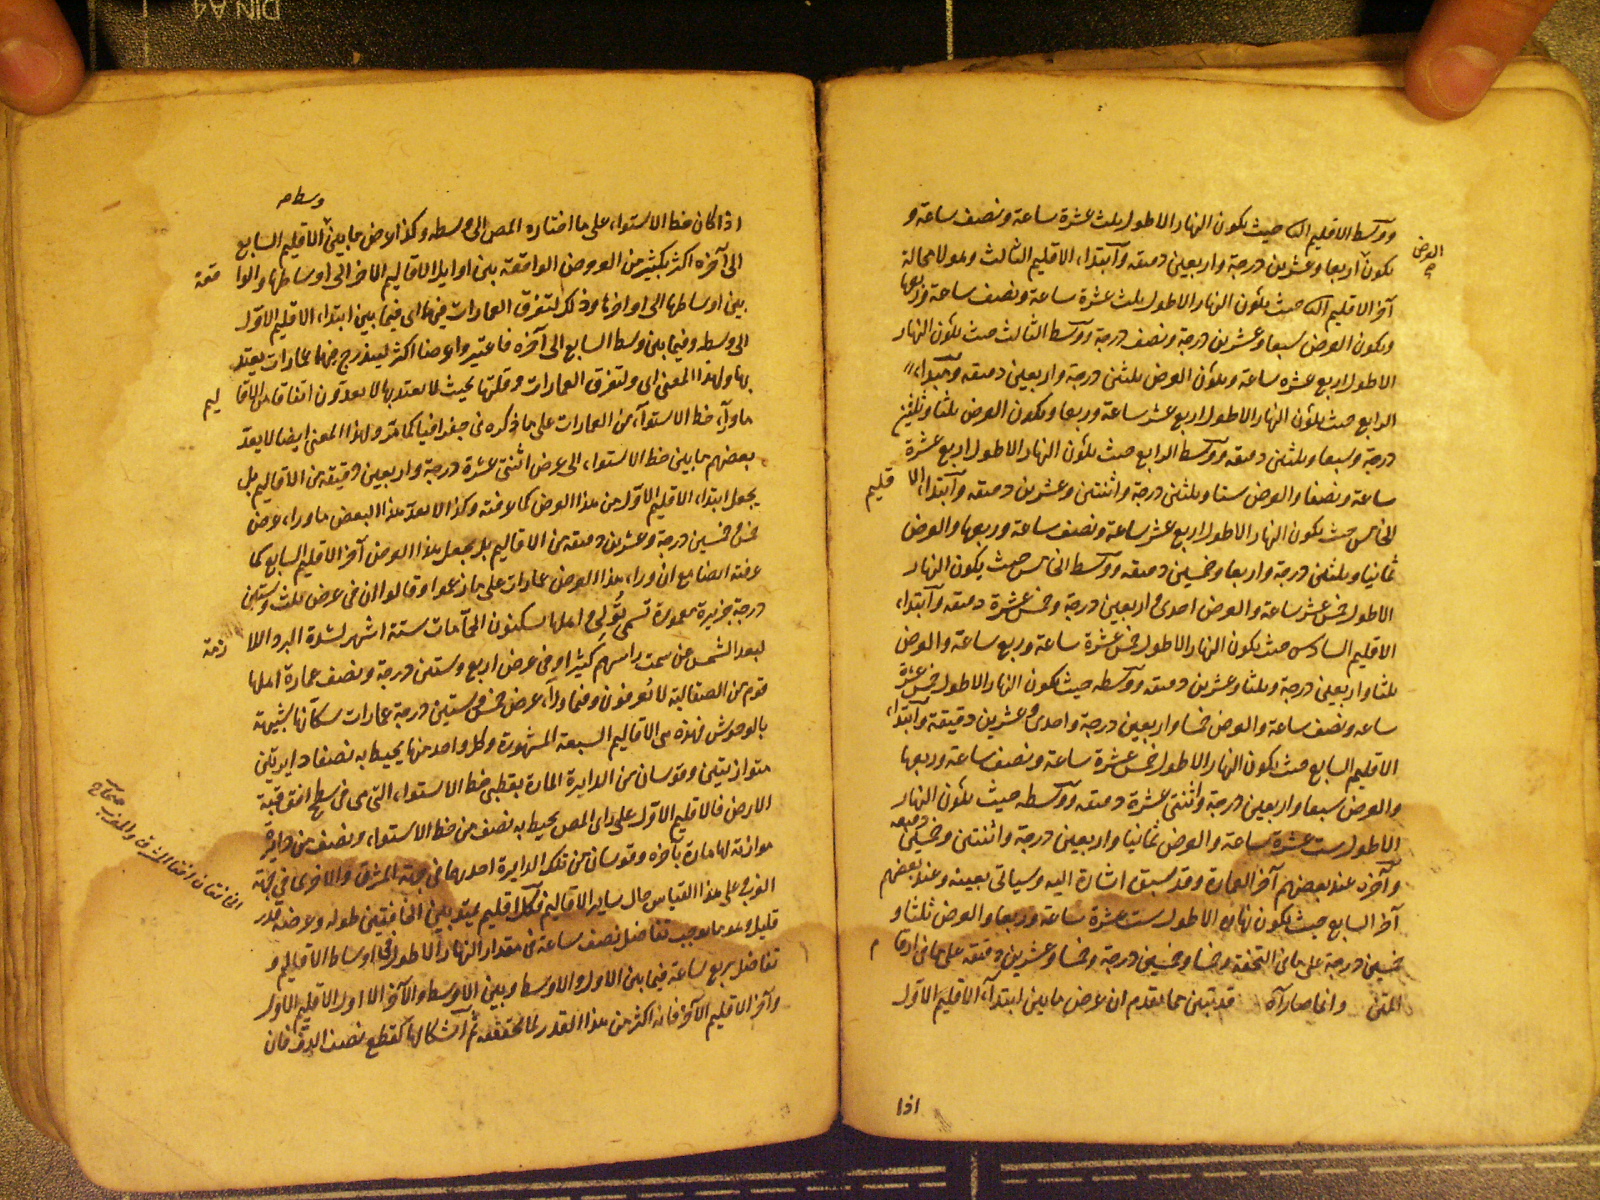 ووسط الاقليم الثا حيث يكون النهار الاطول ثلث عشرة ساعة ونصف ساعة و
العرض
يكون اربعا وعشرين درجة واربعين دقيقه وآبتداء الاقليم الثالث وهو لا محالة
آخر الاقليم الثا حيث يكون النهار الاطول ثلث عشرة ساعة ونصف ساعة وربعها
ويكون العرض سبعا وعشرين درجة ونصف درجة ووسط الثالث حيث يكون النهار
الاطول اربع عشره ساعة ويكون العرض ثلثين درجة واربعين دقيقه وآبتداء
الرابع حيث يكون النهار الاطول اربع عشر ساعة وربعا ويكون العرض ثلثا وثلثين
درجة وسبعا وثلثين دقيقه ووسط الرابع حيث يكون النهار الاطول اربع عشرة
ساعة ونصفا والعرض ستا وثلثين درجة واثنتين وعشرين دقيقه وآبتداء الا قليم
الخامس حيث يكون النهار الاطول اربع عشر ساعة ونصف ساعة وربعها والعرض
ثمانيا وثلثين درجة واربعا وخمسين دقيقه ووسط الخامس حيث يكون النهار
الاطول خمس عشر ساعة والعرض احدى واربعين درجة وخمس عشرة دقيقه وآبتداء
الاقليم السادس حيث يكون النهار الاطول خمس عشرة ساعة وربع ساعة والعرض
ثلثا واربعين درجة وثلثا وعشرين دقيقه ووسطه حيث يكون النهار الاطول خمس عشرة
ساعه ونصف ساعة والعرض خمسا واربعين درجة واحدى وعشرين دقيقة وآبتداء
الاقليم السابع حيث يكون النهار الاطول خمس عشرة ساعة ونصف ساعة وربعها
والعرض سبعا واربعين درجة واثنتى عشرة دقيقه ووسطه حيث يكون النهار
الاطول ست عشرة ساعة والعرض ثمانيا واربعين درجة واثنتين وخمسين دقيقه
وآخره عند بعضهم آخر العمارة وقد سبق اشارة اليه وسياتى بعينه وعند بعضهم
آخر السابع حيث يكون نهاره الاطول ست عشرة ساعة وربعا والعرض ثلثا و
خمسين درجة على ما فى التحفة وخمسا وخمسين درجة وخمسا وعشرين دقيقه على ما فى ارقام
المتن وانما صار آه قد تبين مما تقدم ان عرض ما بين ابتداء الاقليم الاول
اذا
وسطه
اذا كان خط الاستواء على ما اختاره المص الى وسطه وكذا عرض ما بين الاقليم السابع
الى آخره اكثر بكثير من العروض الواقعة بين اوايل الاقاليم الاخر الى اوساطها والوا قعة
بين اوساطها الى اواخرها وذلك لتفرق العمارات فيها اى فيما بين ابتداء الاقليم الاول
الى وسطه وفيما بين وسط السابع الى آخره فاعتبروا عرضا اكثر ليندرج فيها عمارات يعتد
بها ولهذا المعنى اى ولتفرق العمارات وقلتها بحيث لا يعتد بها لا يعدون اتفاقا من الاقا ليم
ماوراء خط الاستواء من العمارات على ما ذكره فى جغرافيا كما مر ولهذا المعنى ايضا لا يعد
بعضهم ما بين خط الاستواء الى عرض اثنتى عشرة درجة واربعين دقيقه من الاقاليم بل
يجعل ابتداء الاقليم الاول من هذا العرض كما عرفته وكذا لا يعد هذا البعض ما وراء عرض
خمس وخمسين درجة وعشرين دقيقه من الاقاليم بل يجعل هذا العرض آخر الاقليم السابع كما
عرفته ايضا مع ان وراء هذا العرض عمارات على ما زعموا وقالوا ان فى عرض ثلث وستين
درجة جزيرة معمورة تسمى تولى اهلها يسكنون الحمامات ستة اشهر لشدة البرد اللا زمة
لبعد الشمس عن سمت راسهم كثيرا وفى عرض اربع وستين درجة ونصف عمارة اهلها
قوم من الصقالبة لا يعرفون وفيما وراء عرض خمس وستين درجة عمارات سكانها شبيهة
بالوحوش فهذه هى الاقاليم السبعة المشهورة وكل واحد منها يحيط به نصفا دايرتين
متوازيتين وقوسان من الدايرة المارة بقطبى خط الاستواء التى هى فى سطح افق قبة
الارض فالاقليم الاول على راى المص يحيط به نصف من خط الاستواء ونصف من دايرة
موازية لها مارة بآخره وقوسان من تلك الدايرة احديهما فى جهة المشرق والاخرى فى جهة
الغرب وعلى هذا القياس حال ساير الاقاليم فكل اقليم يمتد بين الخافقين طوله وعرضه قدر
قليل وهو ما يوجب تفاضل نصف ساعة فى مقدار النهار الاطول فى اوساط الاقاليم و
تفاضل ربع ساعة فيما بين الاول والاوسط وبين الاوسط والآخر الا اول الاقليم الاول
وآخر الاقليم الآخر فانه اكثر من هذا القدر لما تحققه ثم اشكالها كقطع نصف الدف فان
الخافقان افقا المشرق والمغرب صحاح